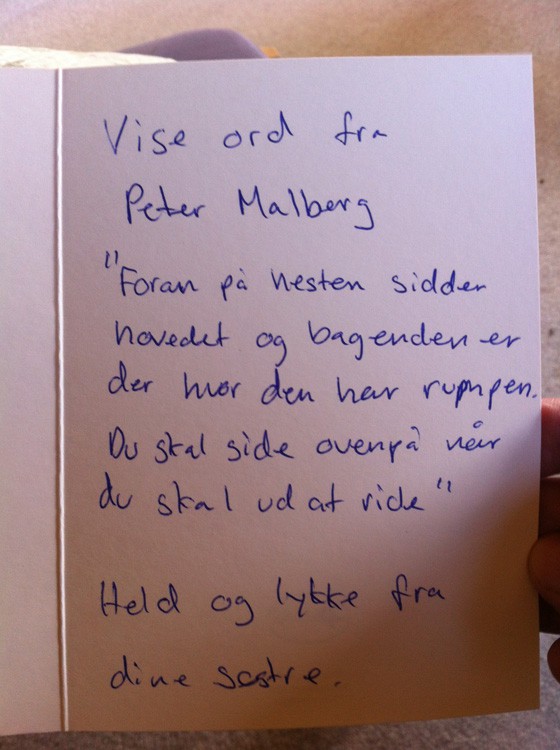 Vise ord fra
Peter Malberg
"Foran på hesten sidder
hovedet og bagenden er
der hvor den har rumpen.
Du skal side ovenpå når
du skal ud at ride"
Held og lykke fra
dine søstre.